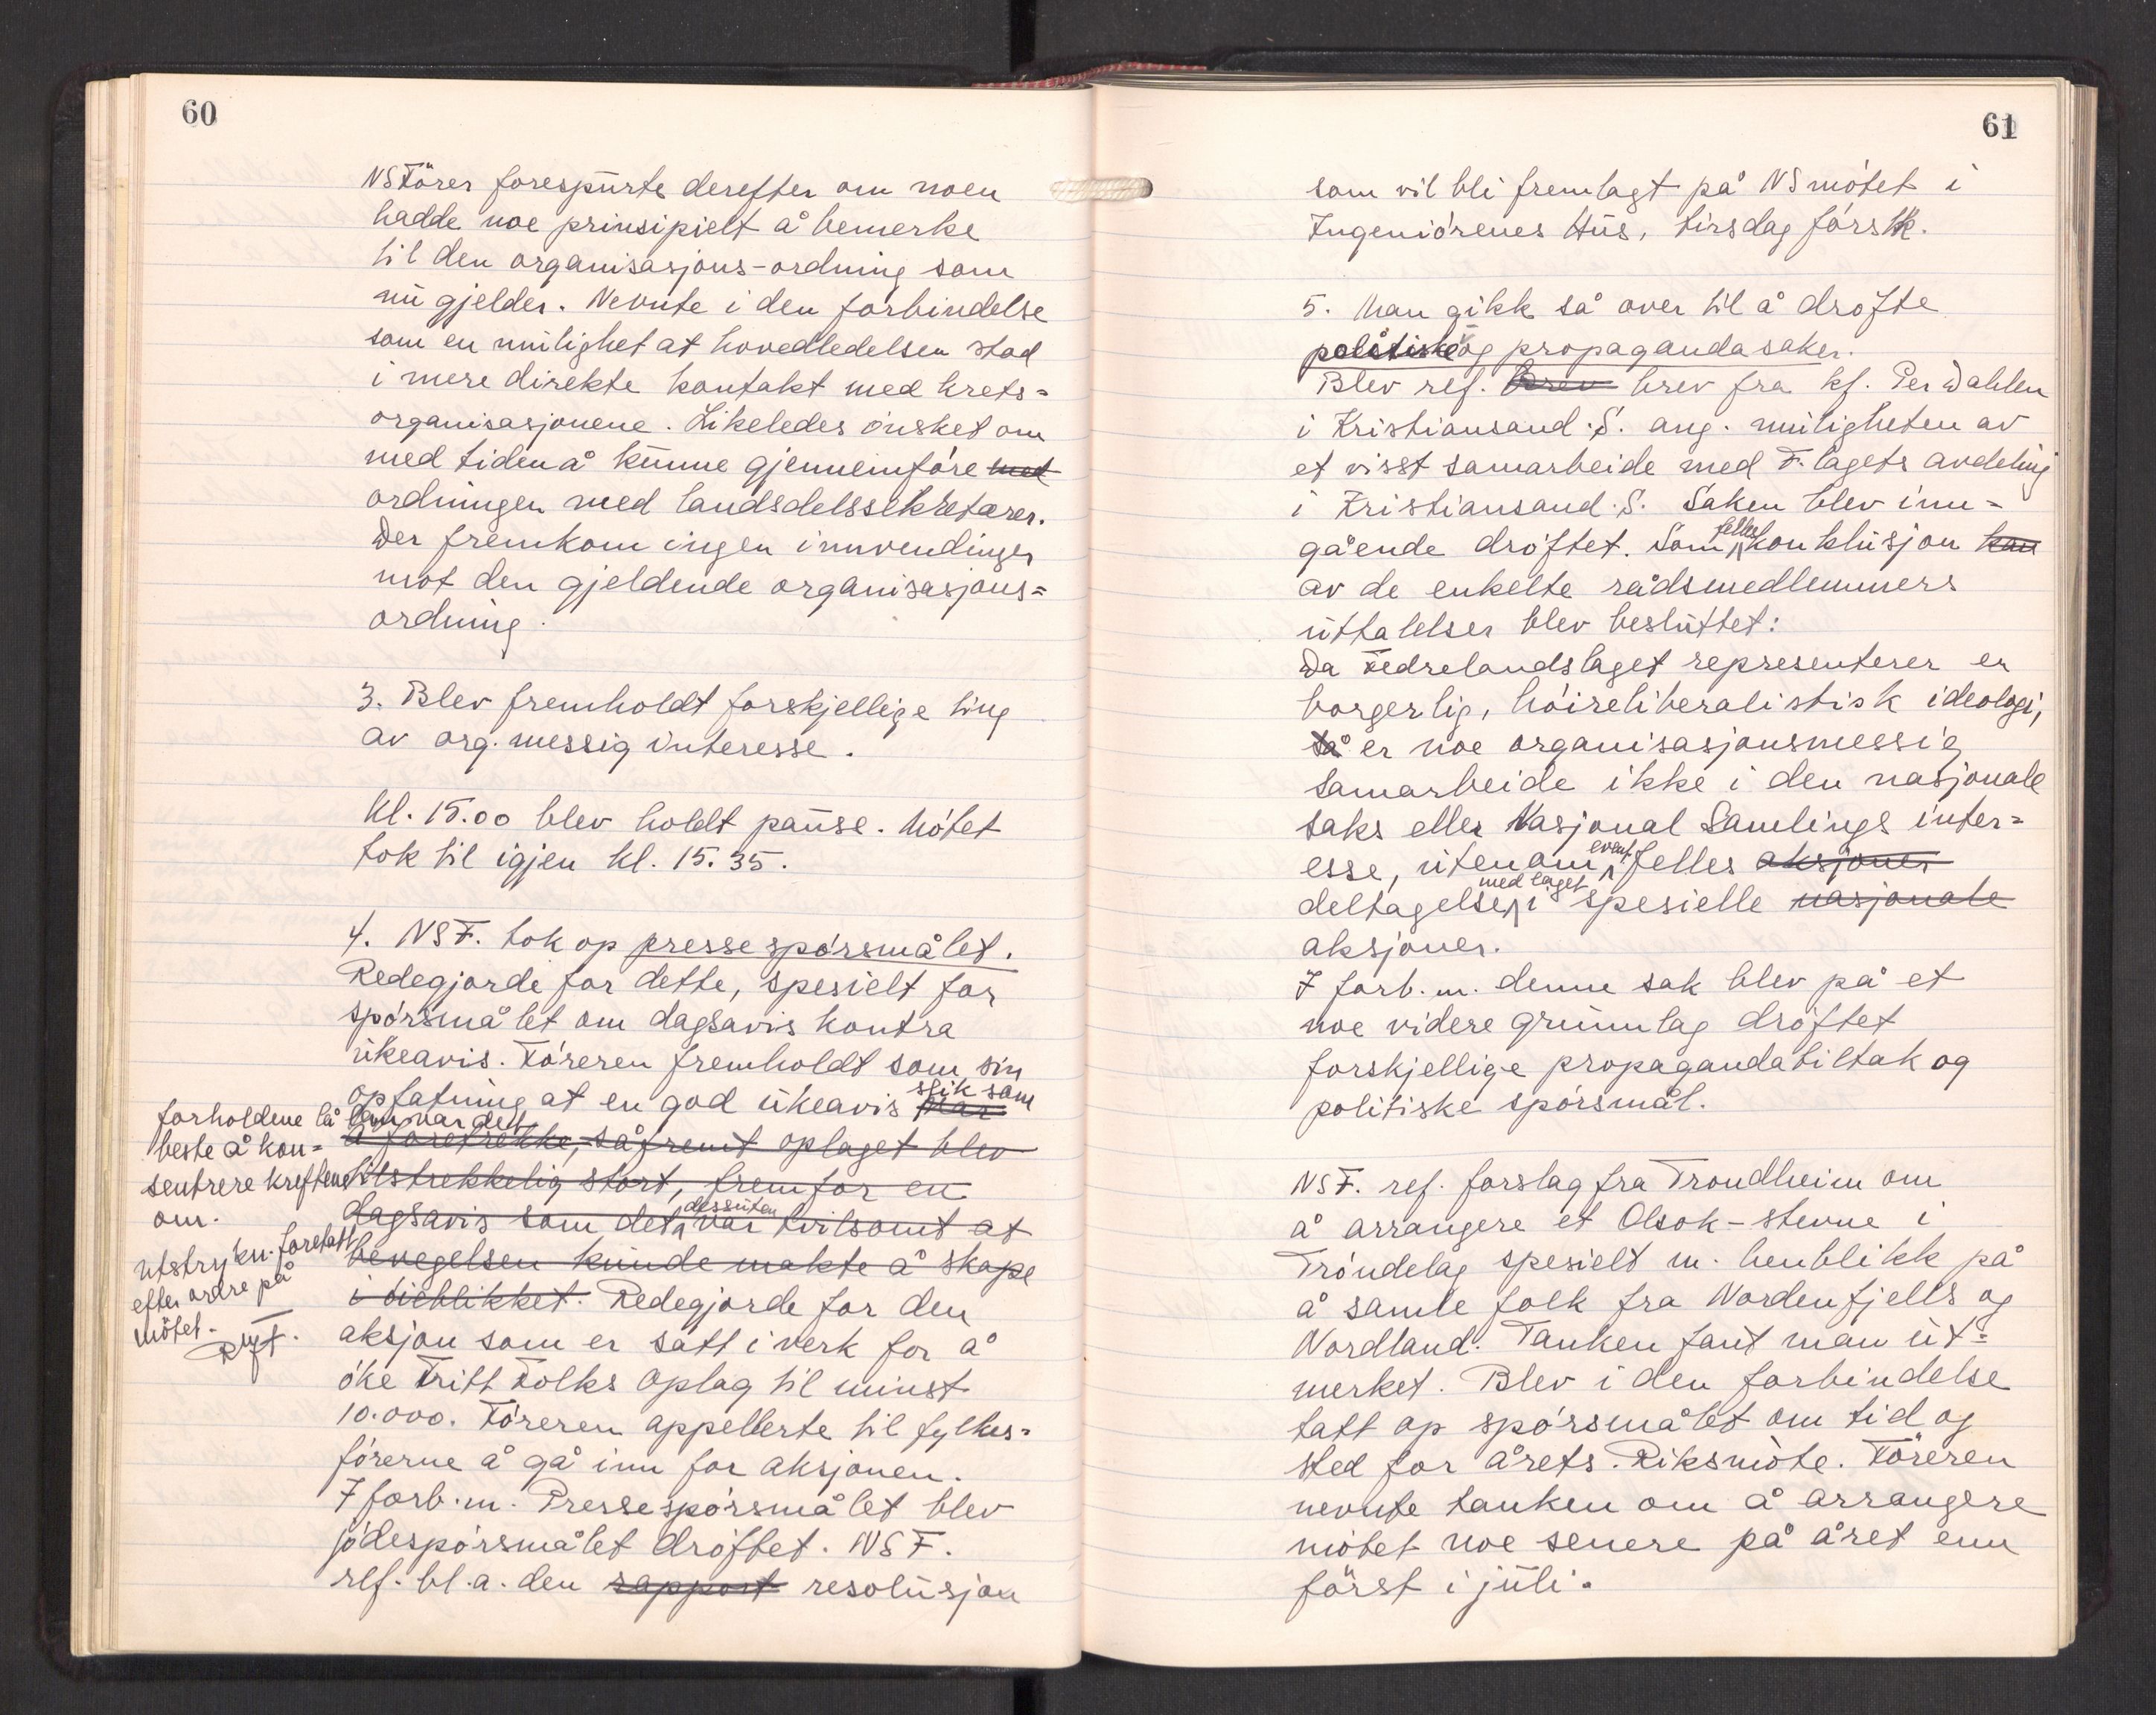 60
NS Förer forespurte derefter om noen
hadde noe prinsipielt å bemerke
til den organisasjons-ordning som
nu gjelder. Nevnte i den forbindelse
som en mulighet at hovedledelsen stod
i mere direkte kontakt med krets=
organisasjonene. Likeledes ønsket om
med tiden å kunne gjennemføre med
ordningen med landsdelssekretærer.
Der fremkom ingen innvendinger
mot den gjeldende organisasjons=
ordning.
3. Blev fremholdt forskjellige ting
av org. messig interesse.
Kl. 15.00 blev holdt pause. Møtet
tok til igjen kl. 15.35.
4. NSF. tok op pressespørsmålet.
Redegjorde for dette, spesielt for
spørsmålet om dagsavis kontra
ukeavis. Føreren fremholdt som sin
opfatning at en god ukeavis var slik som
forholdene lå an var det
beste å kon=
sentrere kreftene
om.
å foretrekke, såfremt oplaget blev
tilstrekkelig stort, fremfor en
dagsavis som det dessuten var tvilsomt at
bevegelsen kunde makte å skape
i øieblikket. Redegjorde for den
Utstrykn. foretatt
efter ordre på
møtet.
aksjon som er satt i verk for å
øke Fritt Folks oplag til minst
10.000. Føreren appellerte til fylkes=
førerne å gå inn for aksjonen.
I forb. m. Pressespørsmålet blev
jødespørsmålet drøftet. NSF.
ref. bl.a. den rapport resolusjon
61
som vil bli fremlagt på NS møtet i
Ingeniørenes Hus, tirsdag førstk.
5. Man gikk så over til å drøfte
politiske og propagandasaker.
Blev ref. brev brev fra kf. Per Dahlen
i Kristiansand.S. ang. muligheten av
et visst samarbeide med F.lagets avdeling
i Kristiansand.S. Saken blev inn=
gående drøftet. Som felles konklusjon kan
av de enkelte rådsmedlemmers
uttalelser blev besluttet:
Da Fedrelandslaget representerer en
borgerlig, høireliberalistisk ideologi,
så er noe organisasjonsmessig
samarbeide ikke i den nasjonale
saks eller Nasjonal Samlings inter=
esse, utenom event. felles aksjoner
deltagelse med laget i spesielle nasjonale
aksjoner.
I forb. m. denne sak blev på et
noe videre grunnlag drøftet
forskjellige propagandatiltak og
politiske spørsmål.
NSF. ref. forslag fra Trondheim om
å arrangere et Olsok-stevne i
Trøndelag spesielt m. henblikk på
å samle folk fra Nordenfjells og
Nordland. Tanken fant man ut=
merket. Blev i den forbindelse
tatt op spørsmålet om tid og
sted for årets Riksmøte. Føreren
nevnte tanken om å arrangere
møtet noe senere på året enn
først i juli.